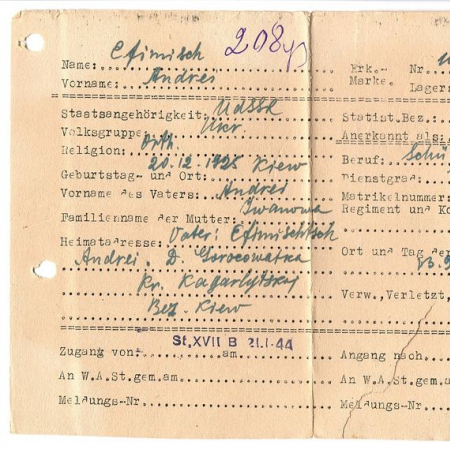 208
Name: Efimisch
Erk.- Nr.
Vorname: Andrei
Marke. Lager:
Staatsangehörigkeit: UdSSR
Statist.Bez.:
Volksgruppe: Ukr.
Anerkannt als:
Religion: Orth.
Beruf: Schü
Geburtstag- und Ort: 20.12.1925 Kiew
Dienstgrad:
Vorname des Vaters: Andrei
Matrikelnummer:
Familienname der Mutter: Iwanowa
Regiment und Ko
Heimatadresse: Vater: Efimischtsch
Andrei. D. Gorocowatka
Ort und Tag der
Kr. Kagarlytskij
Bez. Kiew
Verw.,Verletzt,
St.XVII B 21.1.44
Zugang von: am
Angang nach
An W.A.St.gem.am
An W.A.St.gem.am
Meldungs-Nr
Meldungs-Nr.